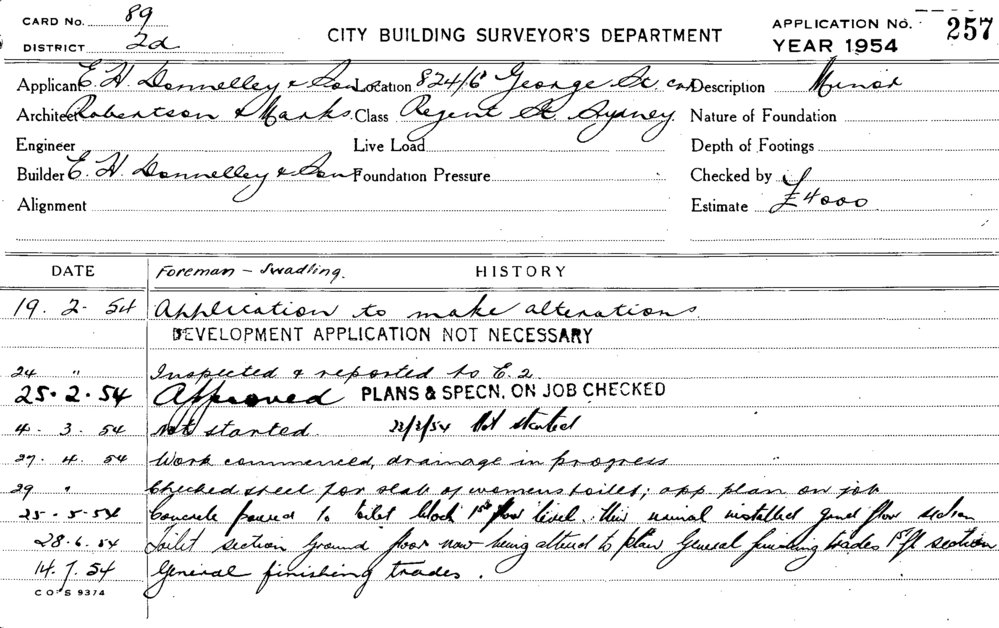 CARD No. 89
DISTRICT 2d
CITY BUILDING SURVEYOR'S DEPARTMENT
APPLICATION No. 257
YEAR 1954
Applicant E. H. Donnelley & Son Location 824/6 George St. cor Description Minor
Architect Robertson & Marks. Class Regent St. Sydney Nature of Foundation
Engineer Live Load Depth of Footings
Builder E. H. Donnelley & Sons Foundation Pressure Checked by
Alignment Estimate £4000
DATE Foreman - Swadling. HISTORY
19. 2. 54 Application to make alterations
DEVELOPMENT APPLICATION NOT NECESSARY
24 " Inspected & reported to E.2
25. 2. 54 Approved PLANS & SPECN. ON JOB CHECKED
4. 3. 54 Not started. 22/3/54 Not started
27. 4. 54 Work commenced, drainage in progress
29 " Checked steel for slab of womens toilet; app. plan on job
25. 5. 54 Concrete poured to toilet block 1st floor level. urinal installed floor section
28. 6. 54 Toilet section Ground floor now being altered to plan General finishing trades 1st fl section
14. 7. 54 General finishing trades.
CO S 9374